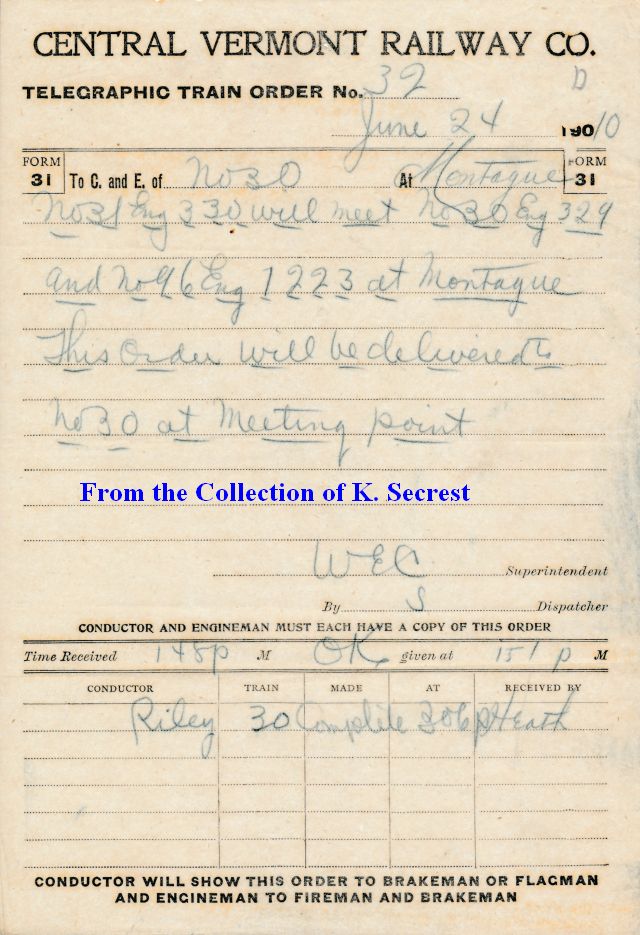 CENTRAL VERMONT RAILWAY CO.
TELEGRAPHIC TRAIN ORDER No. 32 D
June 24 190 10
FORM 31 To C. and E. of No 30 At Montague FORM 31
No 31 Eng 330 will meet No 30 Eng 329
and No 96 Eng 1223 at Montague
This Order will be delivered to
No 30 at Meeting point
From the Collection of K. Secrest
WEC Superintendent
By S Dispatcher
CONDUCTOR AND ENGINEMAN MUST EACH HAVE A COPY OF THIS ORDER
Time Received 148p M OK given at 151p M
CONDUCTOR TRAIN MADE AT RECEIVED BY
Riley 30 Complete 306p Heath
CONDUCTOR WILL SHOW THIS ORDER TO BRAKEMAN OR FLAGMAN
AND ENGINEMAN TO FIREMAN AND BRAKEMAN